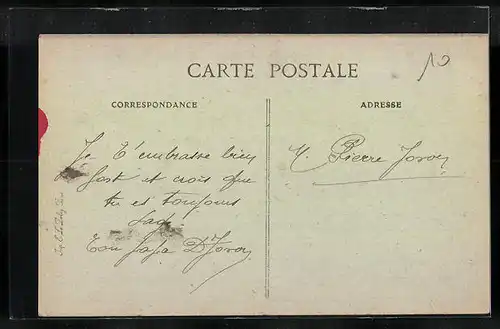 10
CARTE POSTALE
CORRESPONDANCE
ADRESSE
Je t'embrasse bien
fort et crois que
tu es toujours
sage
Ton papa
M. Pierre